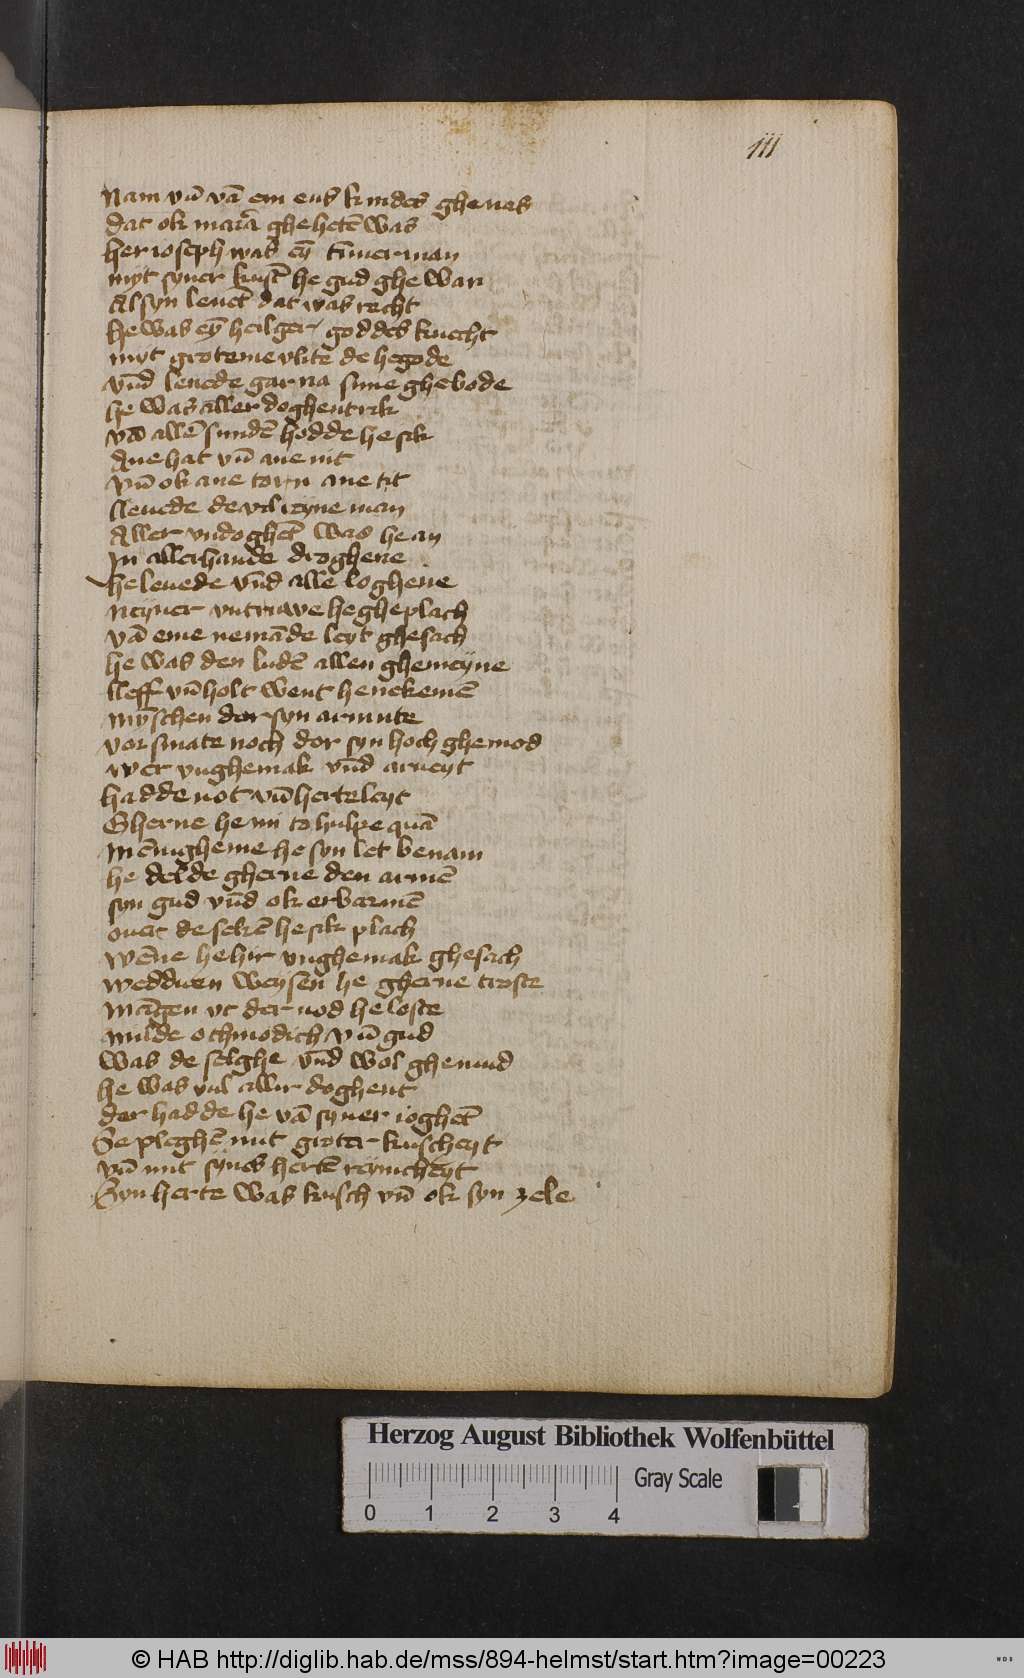 111
Nam vn̄ vā em ens kindes ghenas
dat ok mariā ghehetē was
her ioseph was eȳ tīmerman
myt syner kunst he gud ghe wan
Al syn leuēt dat was recht
he was eȳ heilger goddes knecht
myt groteme vlite de he gode
vn̄d leuede gar na sime ghebode
he was aller doghent rik
vā allē sunden hodde he sik
Ane hat vn̄ ane nit
vn̄ ok ane torn ane tit
lleuede de vil reyne man
Aller vndoghēt was he an
In allerhande droghene
he leuede vn̄d alle loghene
neyner vntruwe he gheplach
vā eme nemāde leyt ghesach
he was den ludē allen ghemeyne
lleff vn̄ holt went he nekemē
mȳschen dor syn armute
vor smate noch dor syn hoch ghemod
wer vnghemak vn̄d arueyt
hadde not vn̄ herteleyt
Gherne he im to hulpe quā
mēnigheme he syn let benam
he delde gherne den armē
syn gud vn̄d ok erbarmē
ouer de sekē he sik plach
wēne he hir vnghemak ghesach
wedduen weysen he gherne troste
māgen vt der nod he loste
milde othmodich vn̄ gud
was de selghe vn̄d wol ghemud
he was vul allir doghent
der hadde he vā syner ioghēt
Se pleghē mit groter kuscheyt
vn̄ mit synes hertē reynicheyt
Syn herte was kusch vn̄ ok syn zele
Herzog August Bibliothek Wolfenbüttel
Gray Scale
0 1 2 3 4
© HAB http://diglib.hab.de/mss/894-helmst/start.htm?image=00223